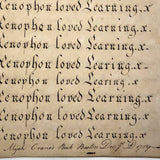 Xenophon loved Learning.x
Xenophon loved Learning.x
Xenophon loved Learning.x
Xenophon loved Learing.x
Xenophon loved Learning.x
Xenophon loved Learning.x
Xenophon loved Learning.x
Book